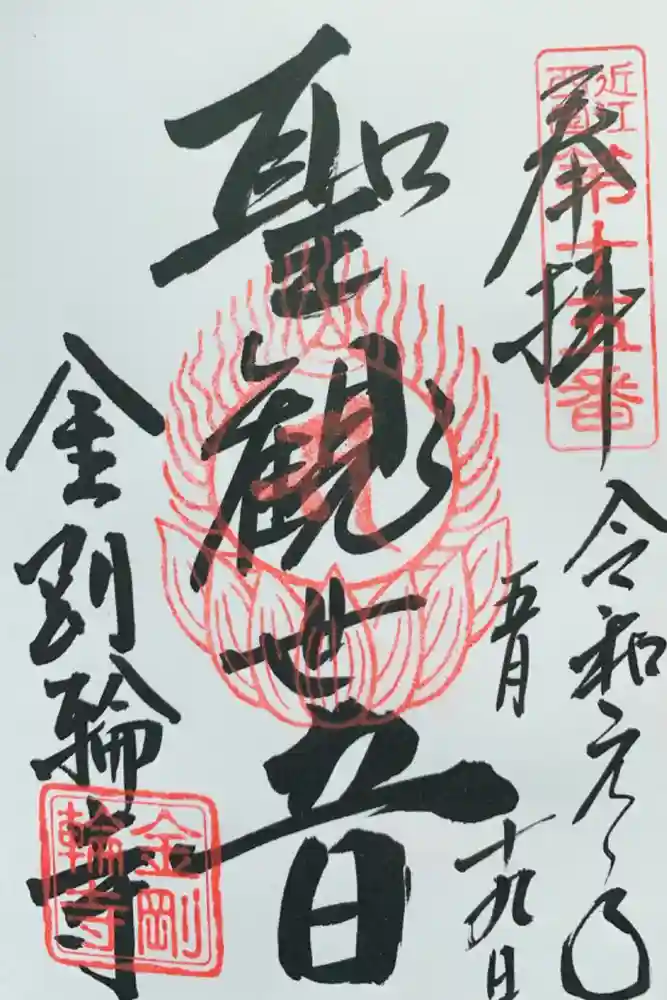 奉拝
近江
西国
第十五番
令和元年
五月
十九日
聖観世音
金剛輪寺
金剛
輪寺